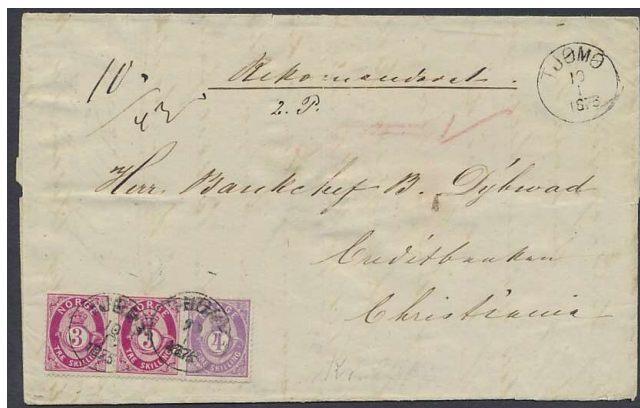 10.
Rekomanderet.
2. P.
TJØMØ
19
1
1875
Herr. Bankchef B. Dybwad
Creditbanken
Christiania
NORGE
3
TRE SKILLING
NORGE
3
TRE SKILLING
4
SKILLING